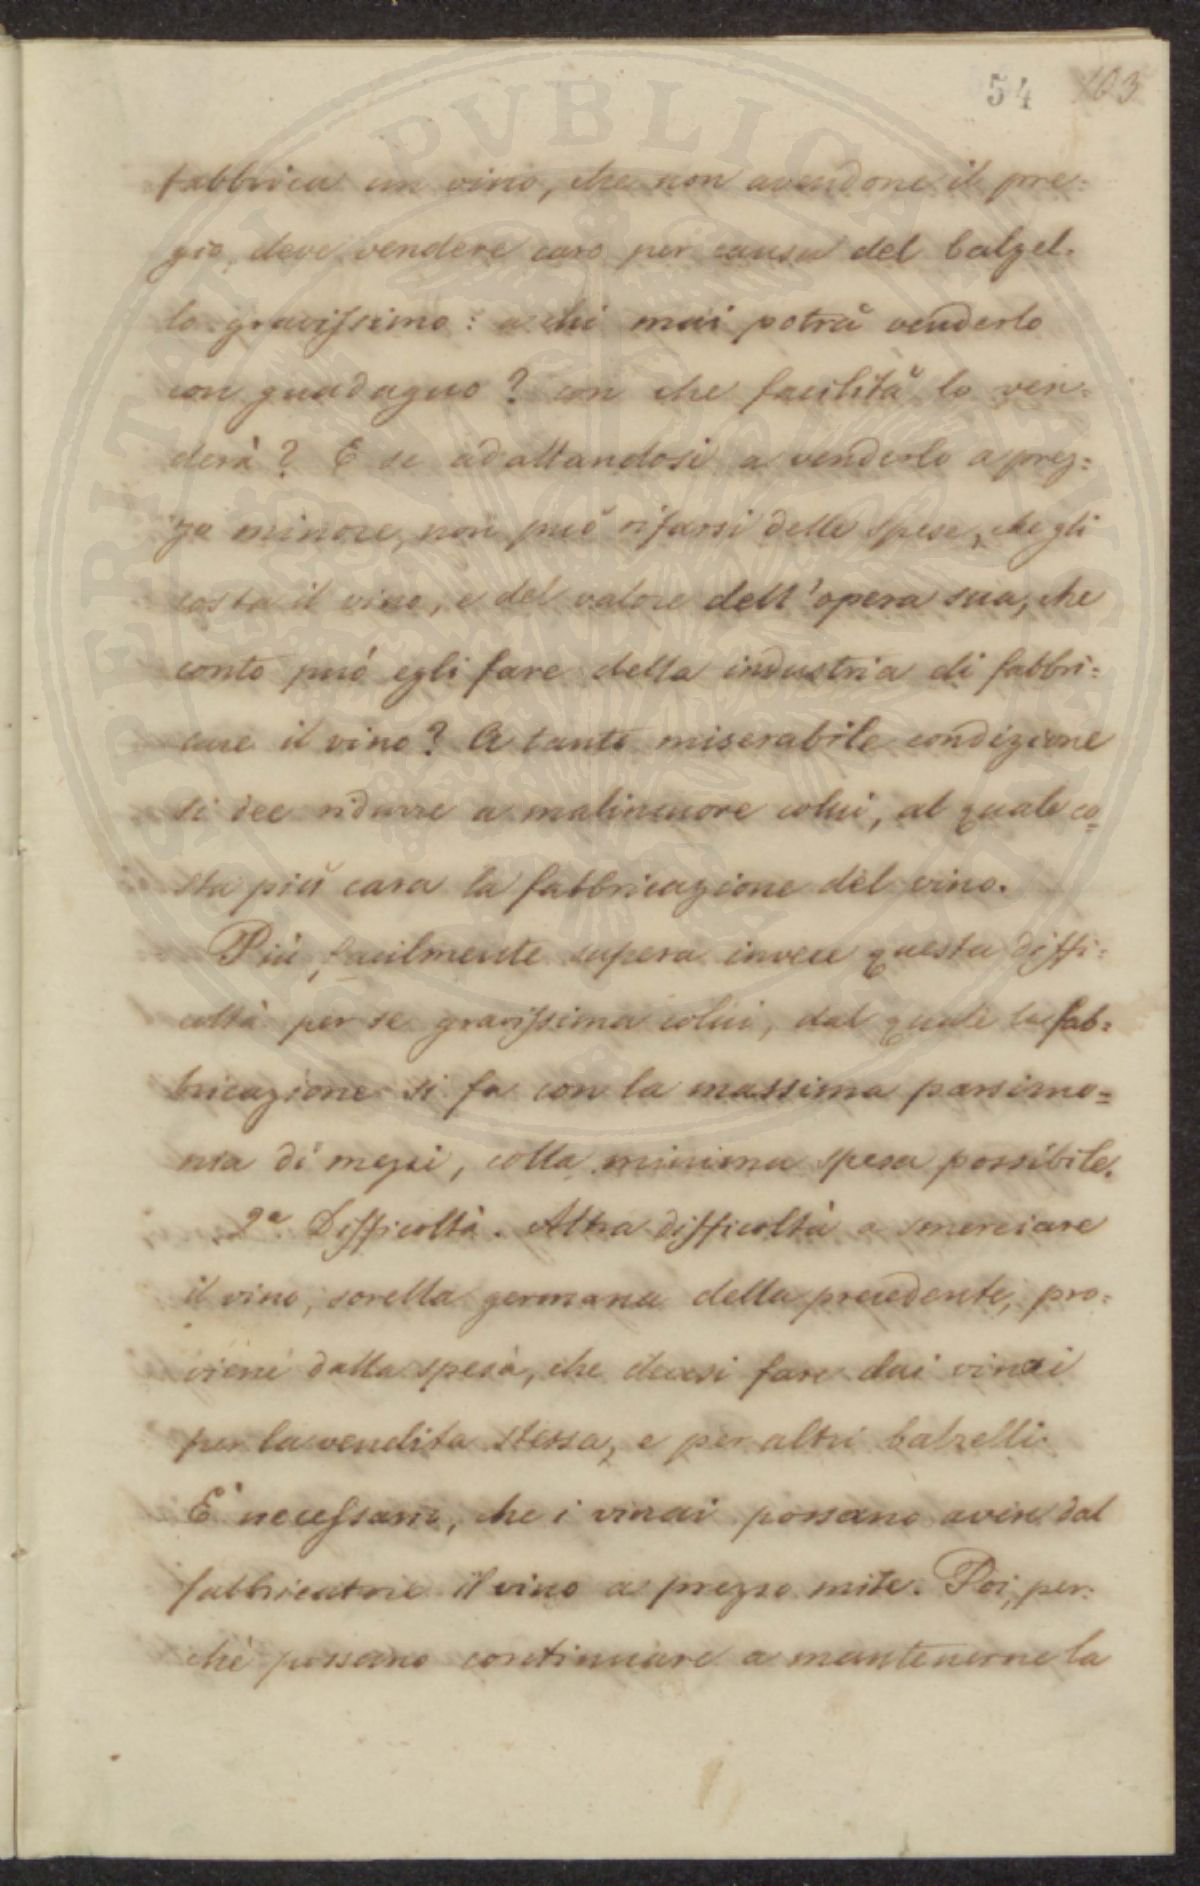 54 103
fabbrica un vino, che non avendone il pre=
gio, deve vendere caro per causa del balzel=
lo gravissimo: a chi mai potrà venderlo
con guadagno? con che facilità lo ven=
derà? E se adattandosi a venderlo a prez=
zo minore, non può rifarsi delle spese, che gli
costa il vino, e del valore dell'opera sua, che
conto può egli fare della industria di fabbri=
care il vino? A tanto miserabile condizione
si dee ridurre a malincuore colui, al quale co=
sta più cara la fabbricazione del vino.
Più facilmente supera invece questa diffi=
coltà per se gravissima colui, dal quale la fab=
bricazione si fa con la massima parsimo=
nia di mezzi, colla minima spesa possibile.
2ª Difficoltà. Altra difficoltà a smerciare
il vino, sorella germana della precedente, pro=
viene dalla spesa, che deesi fare dai vinai
per la vendita stessa, e per altri balzelli.
È necessario, che i vinai possano avere dal
fabbricatore il vino a prezzo mite. Poi, per=
chè possano continuare a mantenerne la
PVBLICAE